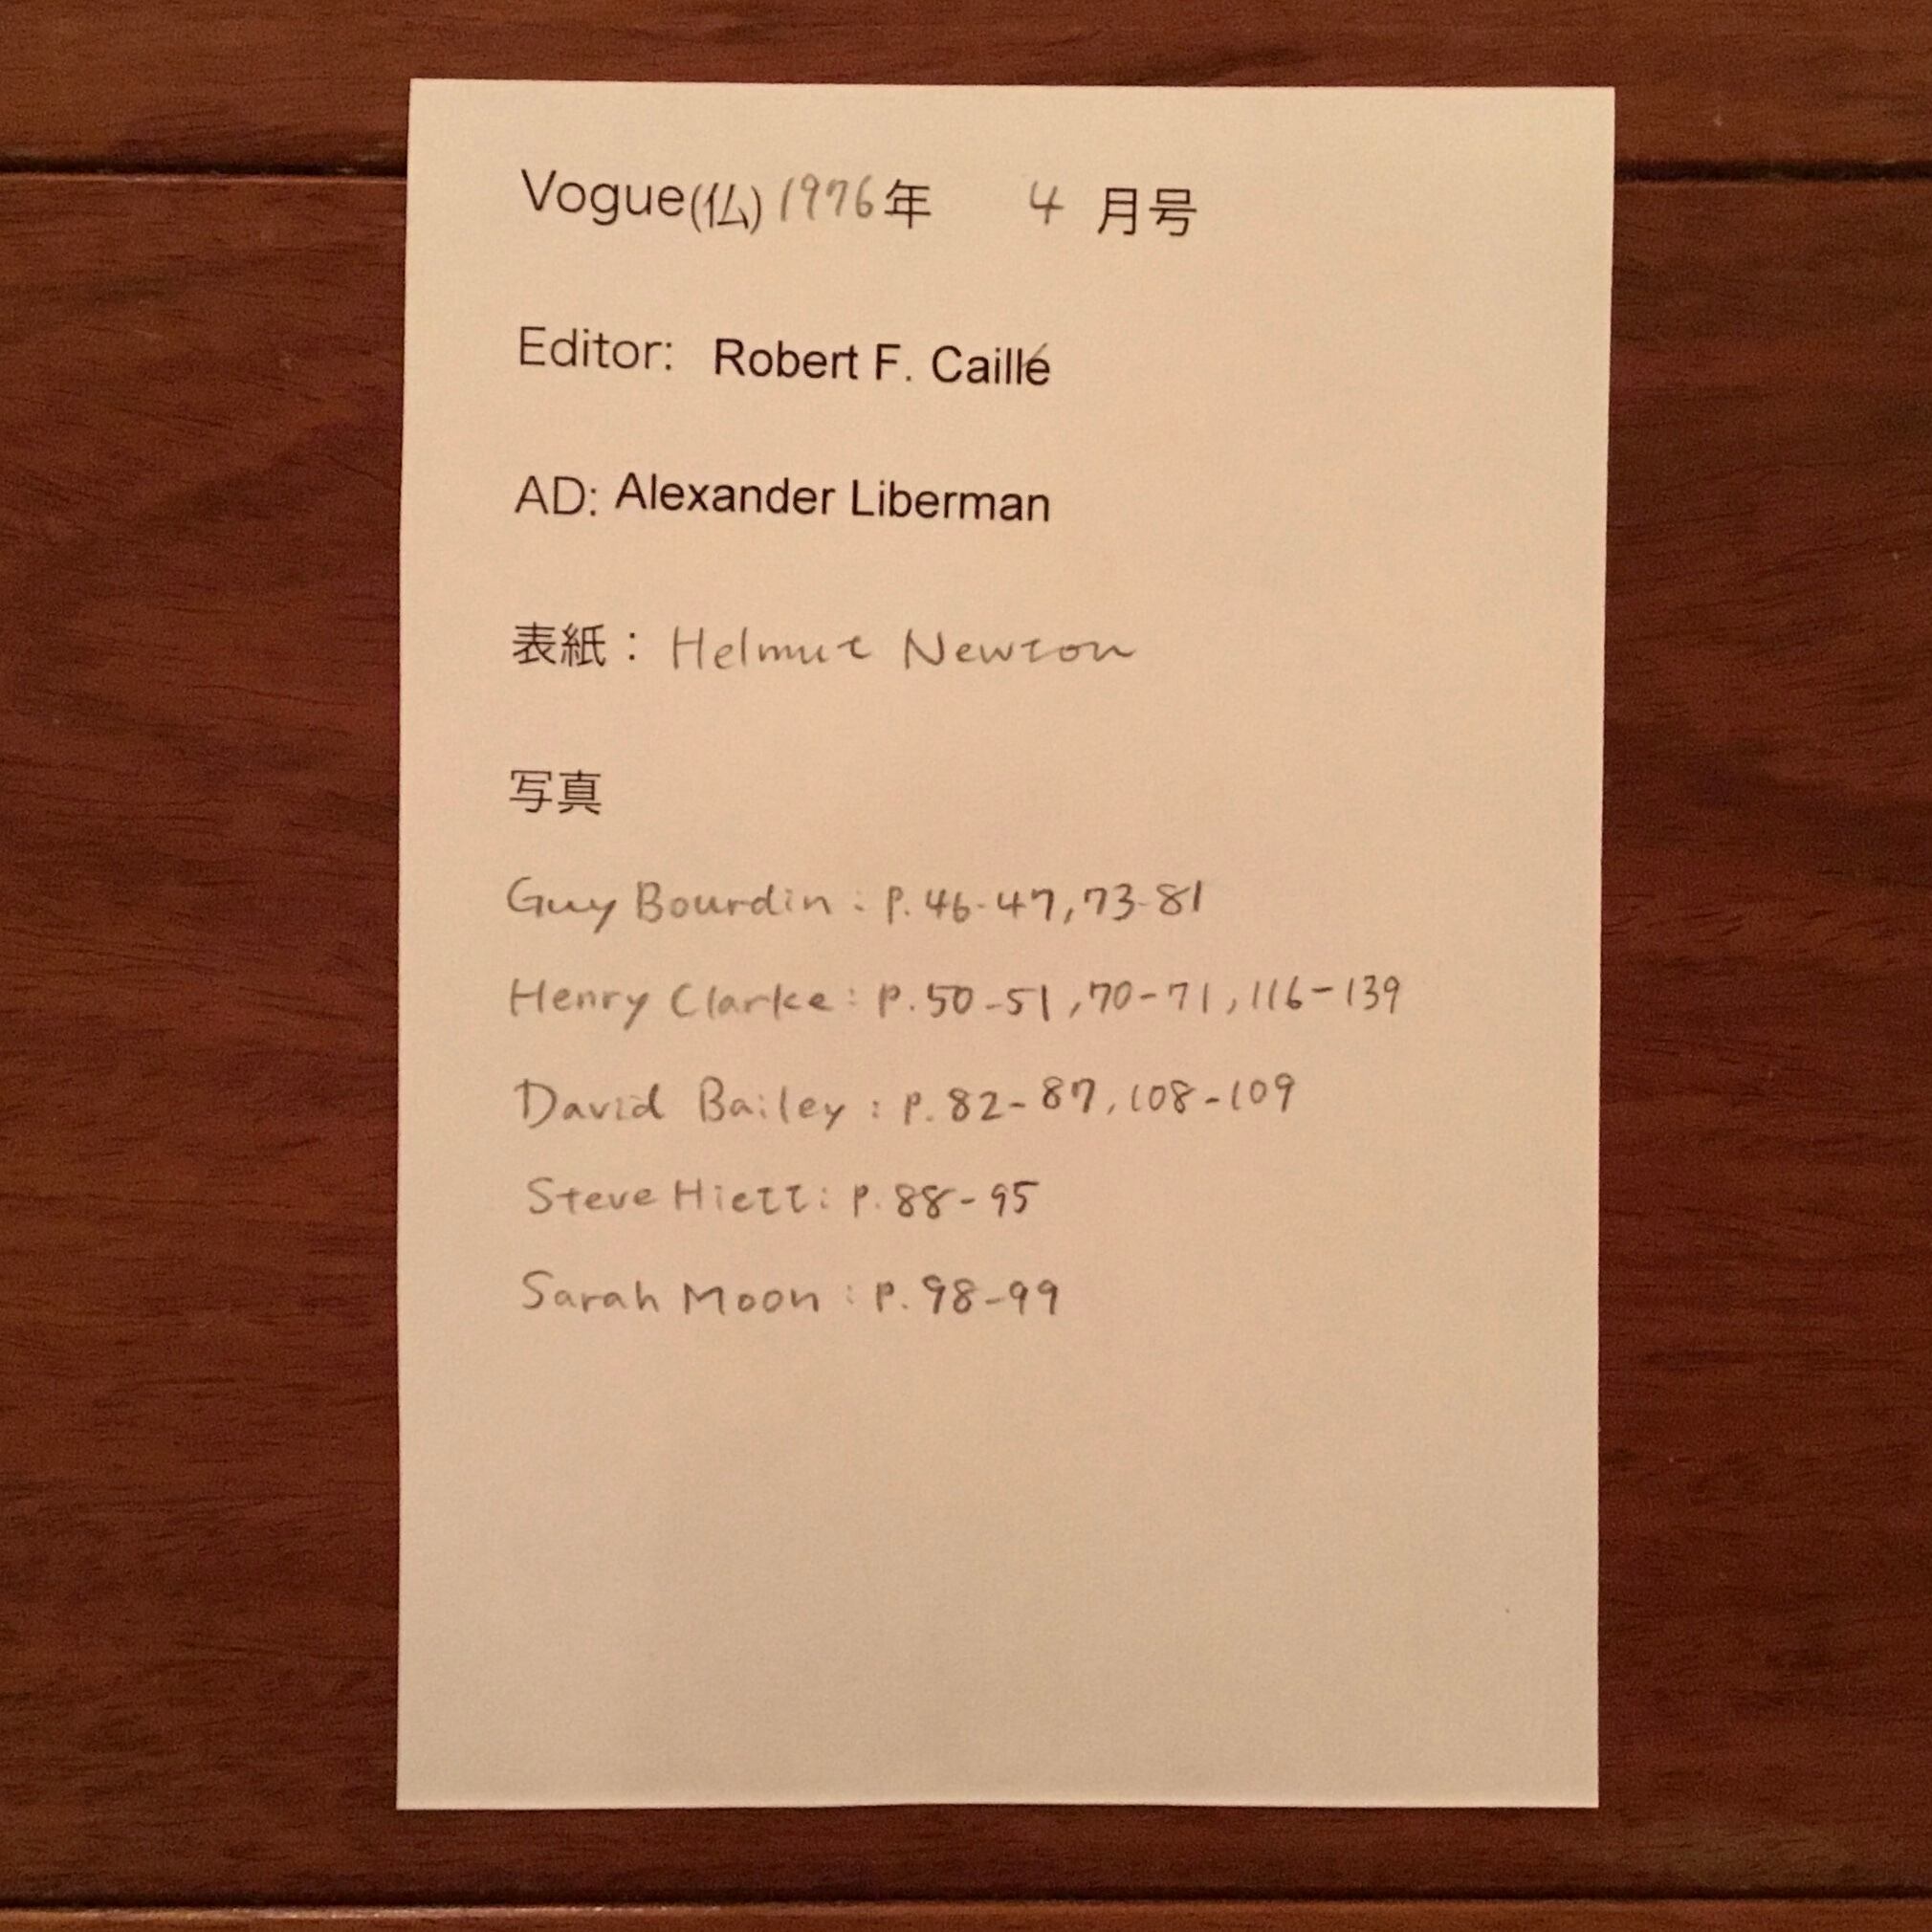 Vogue(仏) 1976年 4 月号
Editor: Robert F. Caillé
AD: Alexander Liberman
表紙： Helmut Newton
写真
Guy Bourdin : P. 46-47, 73-81
Henry Clarke : P. 50-51, 70-71, 116-139
David Bailey : P. 82-87, 108-109
Steve Hiett : P. 88-95
Sarah Moon : P. 98-99